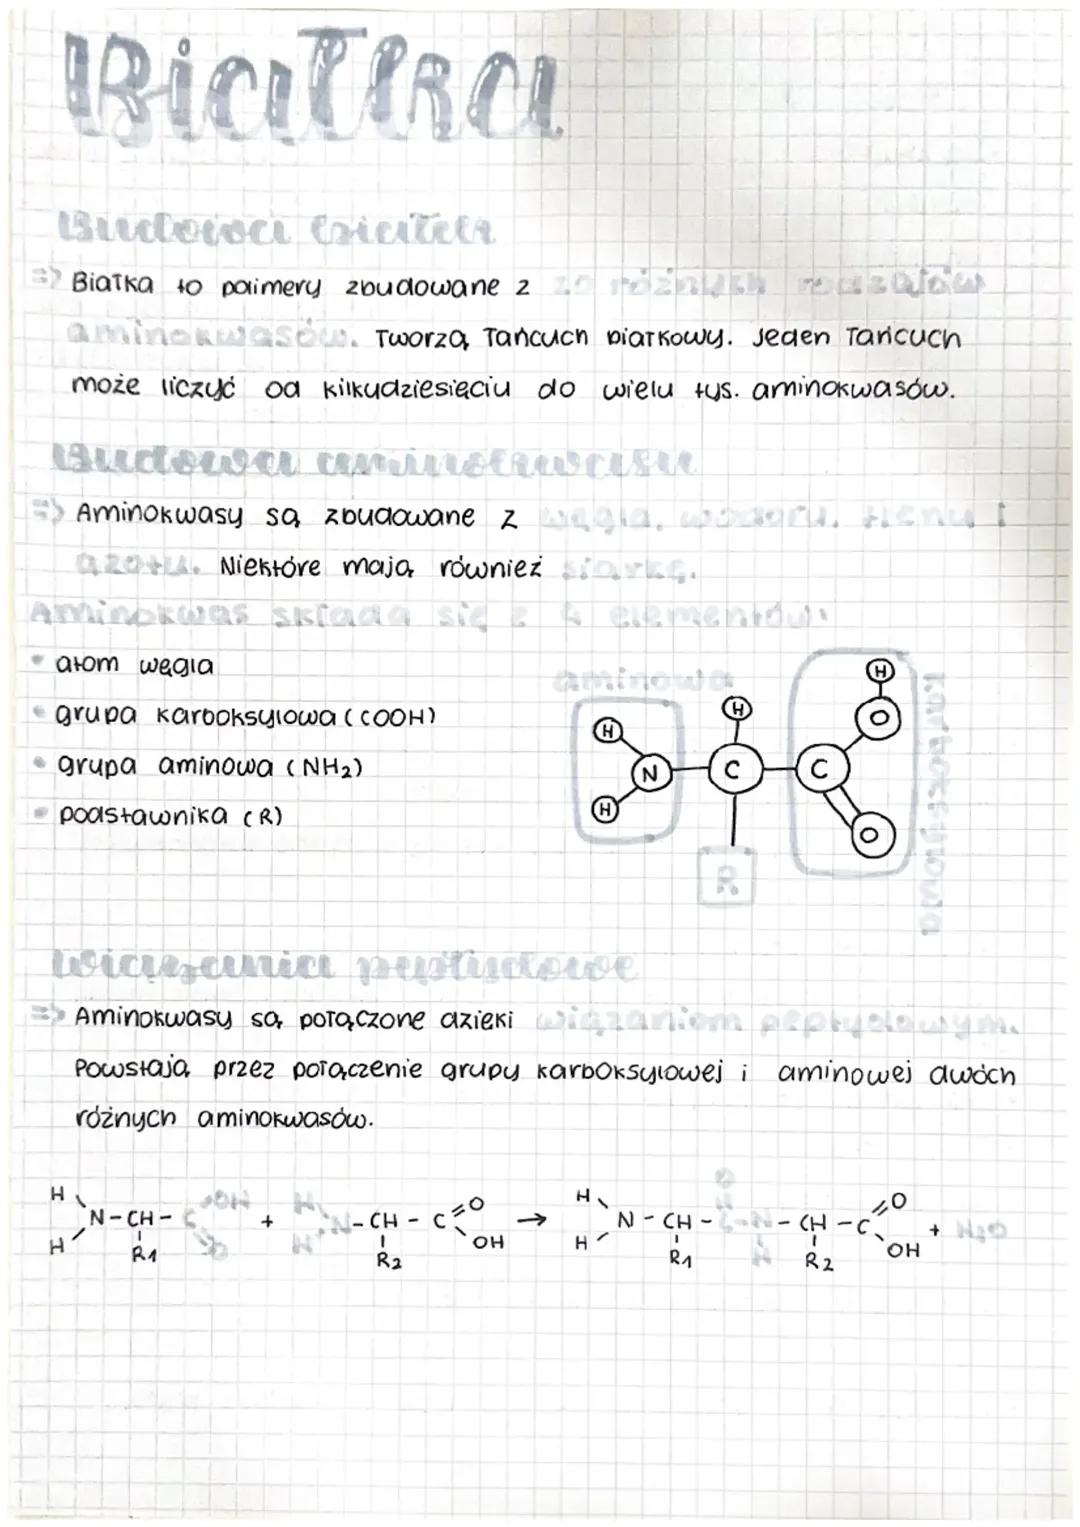 Białka
Budowa białek
=> Białka to polimery zbudowane z 20 różnych rodzajów
aminokwasów. Tworzą łańcuch białkowy. Jeden łańcuch
może liczyć od kilkudziesięciu do wielu tys. aminokwasów.
Budowa aminokwasu
=> Aminokwasy są zbudowane z węgla, wodoru, tlenu i
azotu. Niektóre mają również siarkę.
Aminokwas składa się z 4 elementów:
• atom węgla
• grupa karboksylowa (COOH)
• grupa aminowa (NH2)
• podstawnika (R)
aminowa
karboksylowa
H
H
H
N
C
C
H
O
O
R
Wiązania peptydowe
=> Aminokwasy są połączone dzięki wiązaniom peptydowym.
Powstają przez połączenie grupy karboksylowej i aminowej dwóch
różnych aminokwasów.
H OH H O H O O
N-CH-C + N-CH-C → N-CH-C-N-CH-C + H2O
H R1 O H R2 OH H R1 H R2 OH